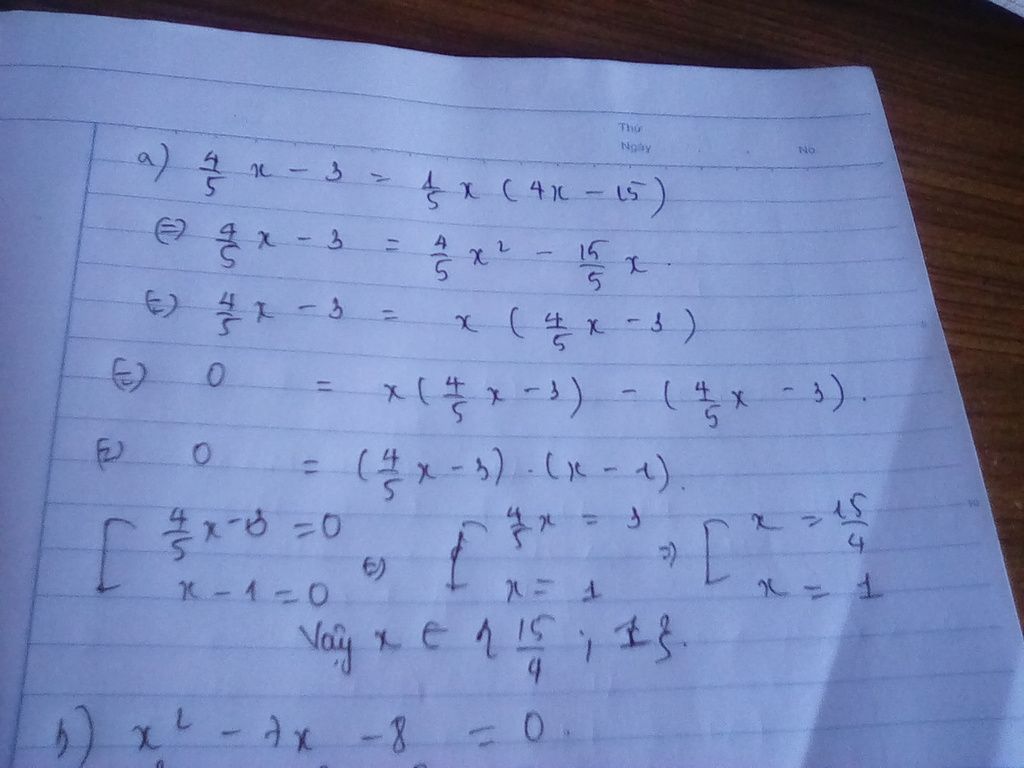 Thứ
Ngày No
a) 4/5 x - 3 = 1/5 x (4x - 15)
⇔ 4/5 x - 3 = 4/5 x² - 15/5 x.
⇔ 4/5 x - 3 = x (4/5 x - 3)
⇔ 0 = x (4/5 x - 3) - (4/5 x - 3).
⇔ 0 = (4/5 x - 3) . (x - 1).
[ 4/5 x - 3 = 0 ⇔ [ 4/5 x = 3 ⇒ [ x = 15/4
x - 1 = 0 x = 1 x = 1
Vậy x ∈ { 15/4 ; 1 }.
b) x² - 7x - 8 = 0.